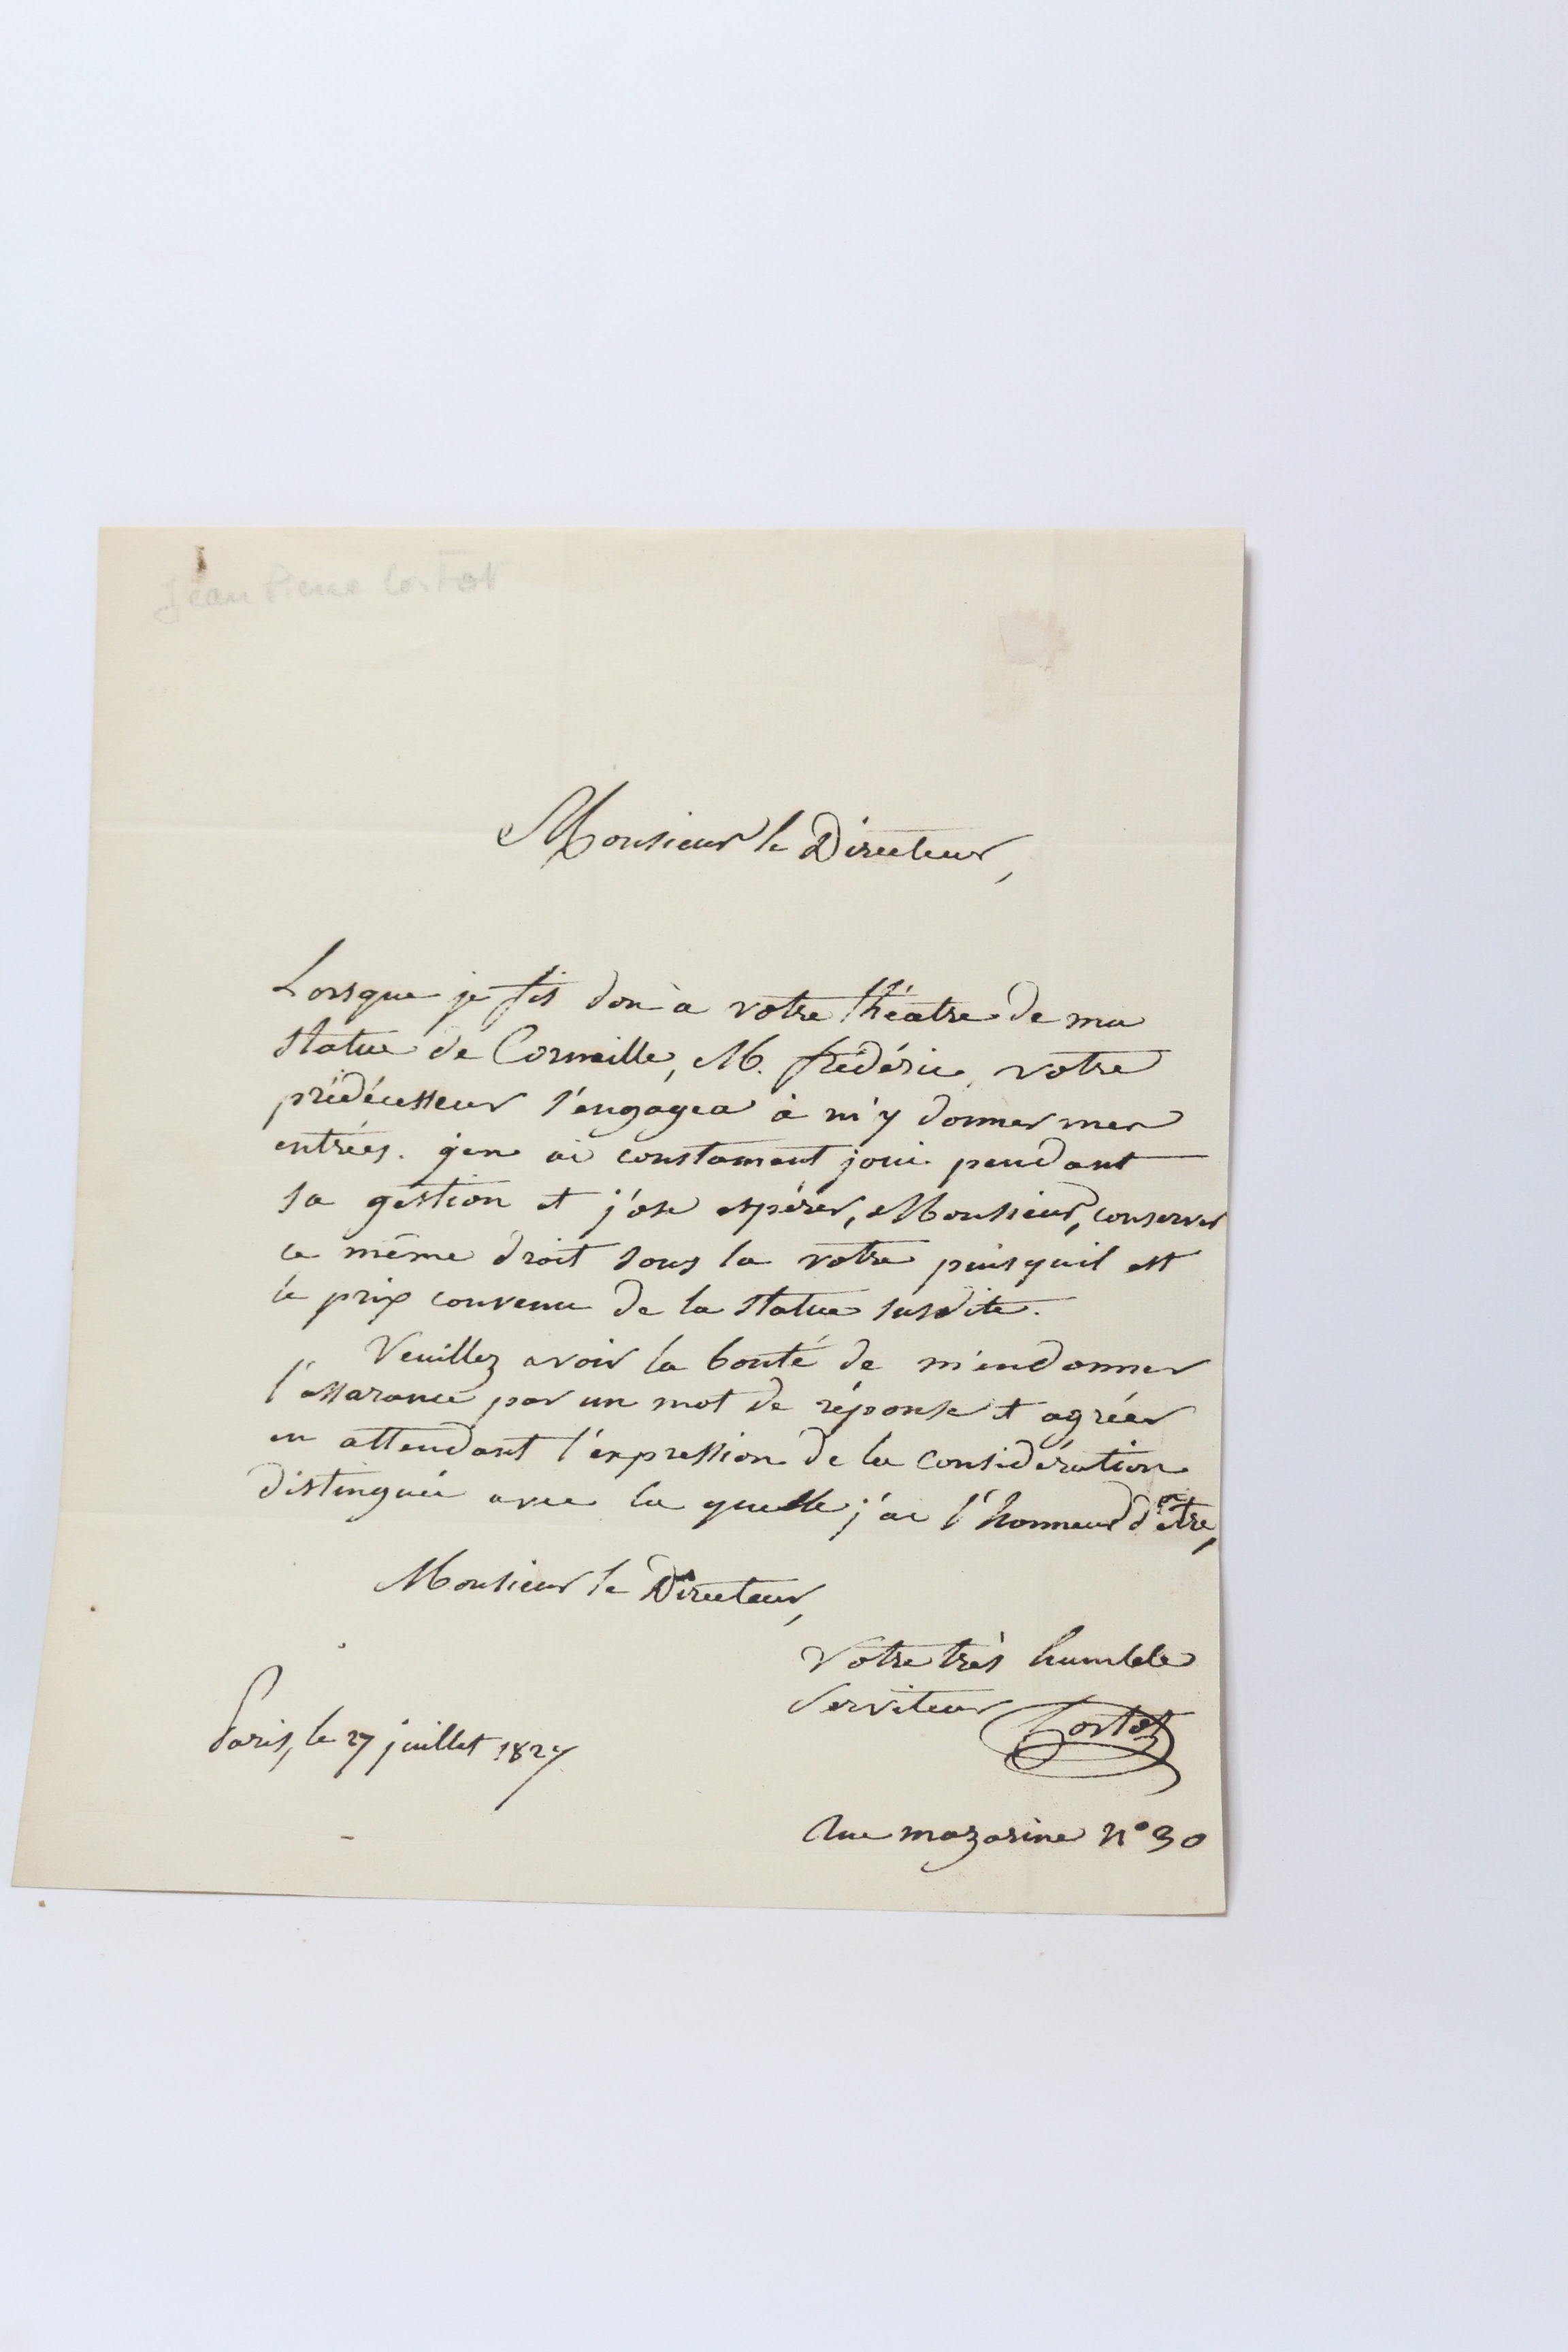 Jean Pierre Cortot
Monsieur le Directeur,
Lorsque je fis don à votre théatre de ma
statue de Corneille, M. frédéric, votre
prédécesseur s'engagea à m'y donner mes
entrées. j'en ai constament joui pendant
sa gestion et j'ose espérer, Monsieur, conserver
ce même droit sous la votre puisqu'il est
le prix convenu de la statue susdite.
Veuillez avoir la bonté de m'en donner
l'assurance par un mot de réponse et agréer
en attendant l'expression de la considération
distinguée avec la quelle j'ai l'honneur d'être,
Monsieur le Directeur,
Votre très humble
Serviteur Cortot
Paris, le 27 juillet 1827
Rue mazarine n° 30